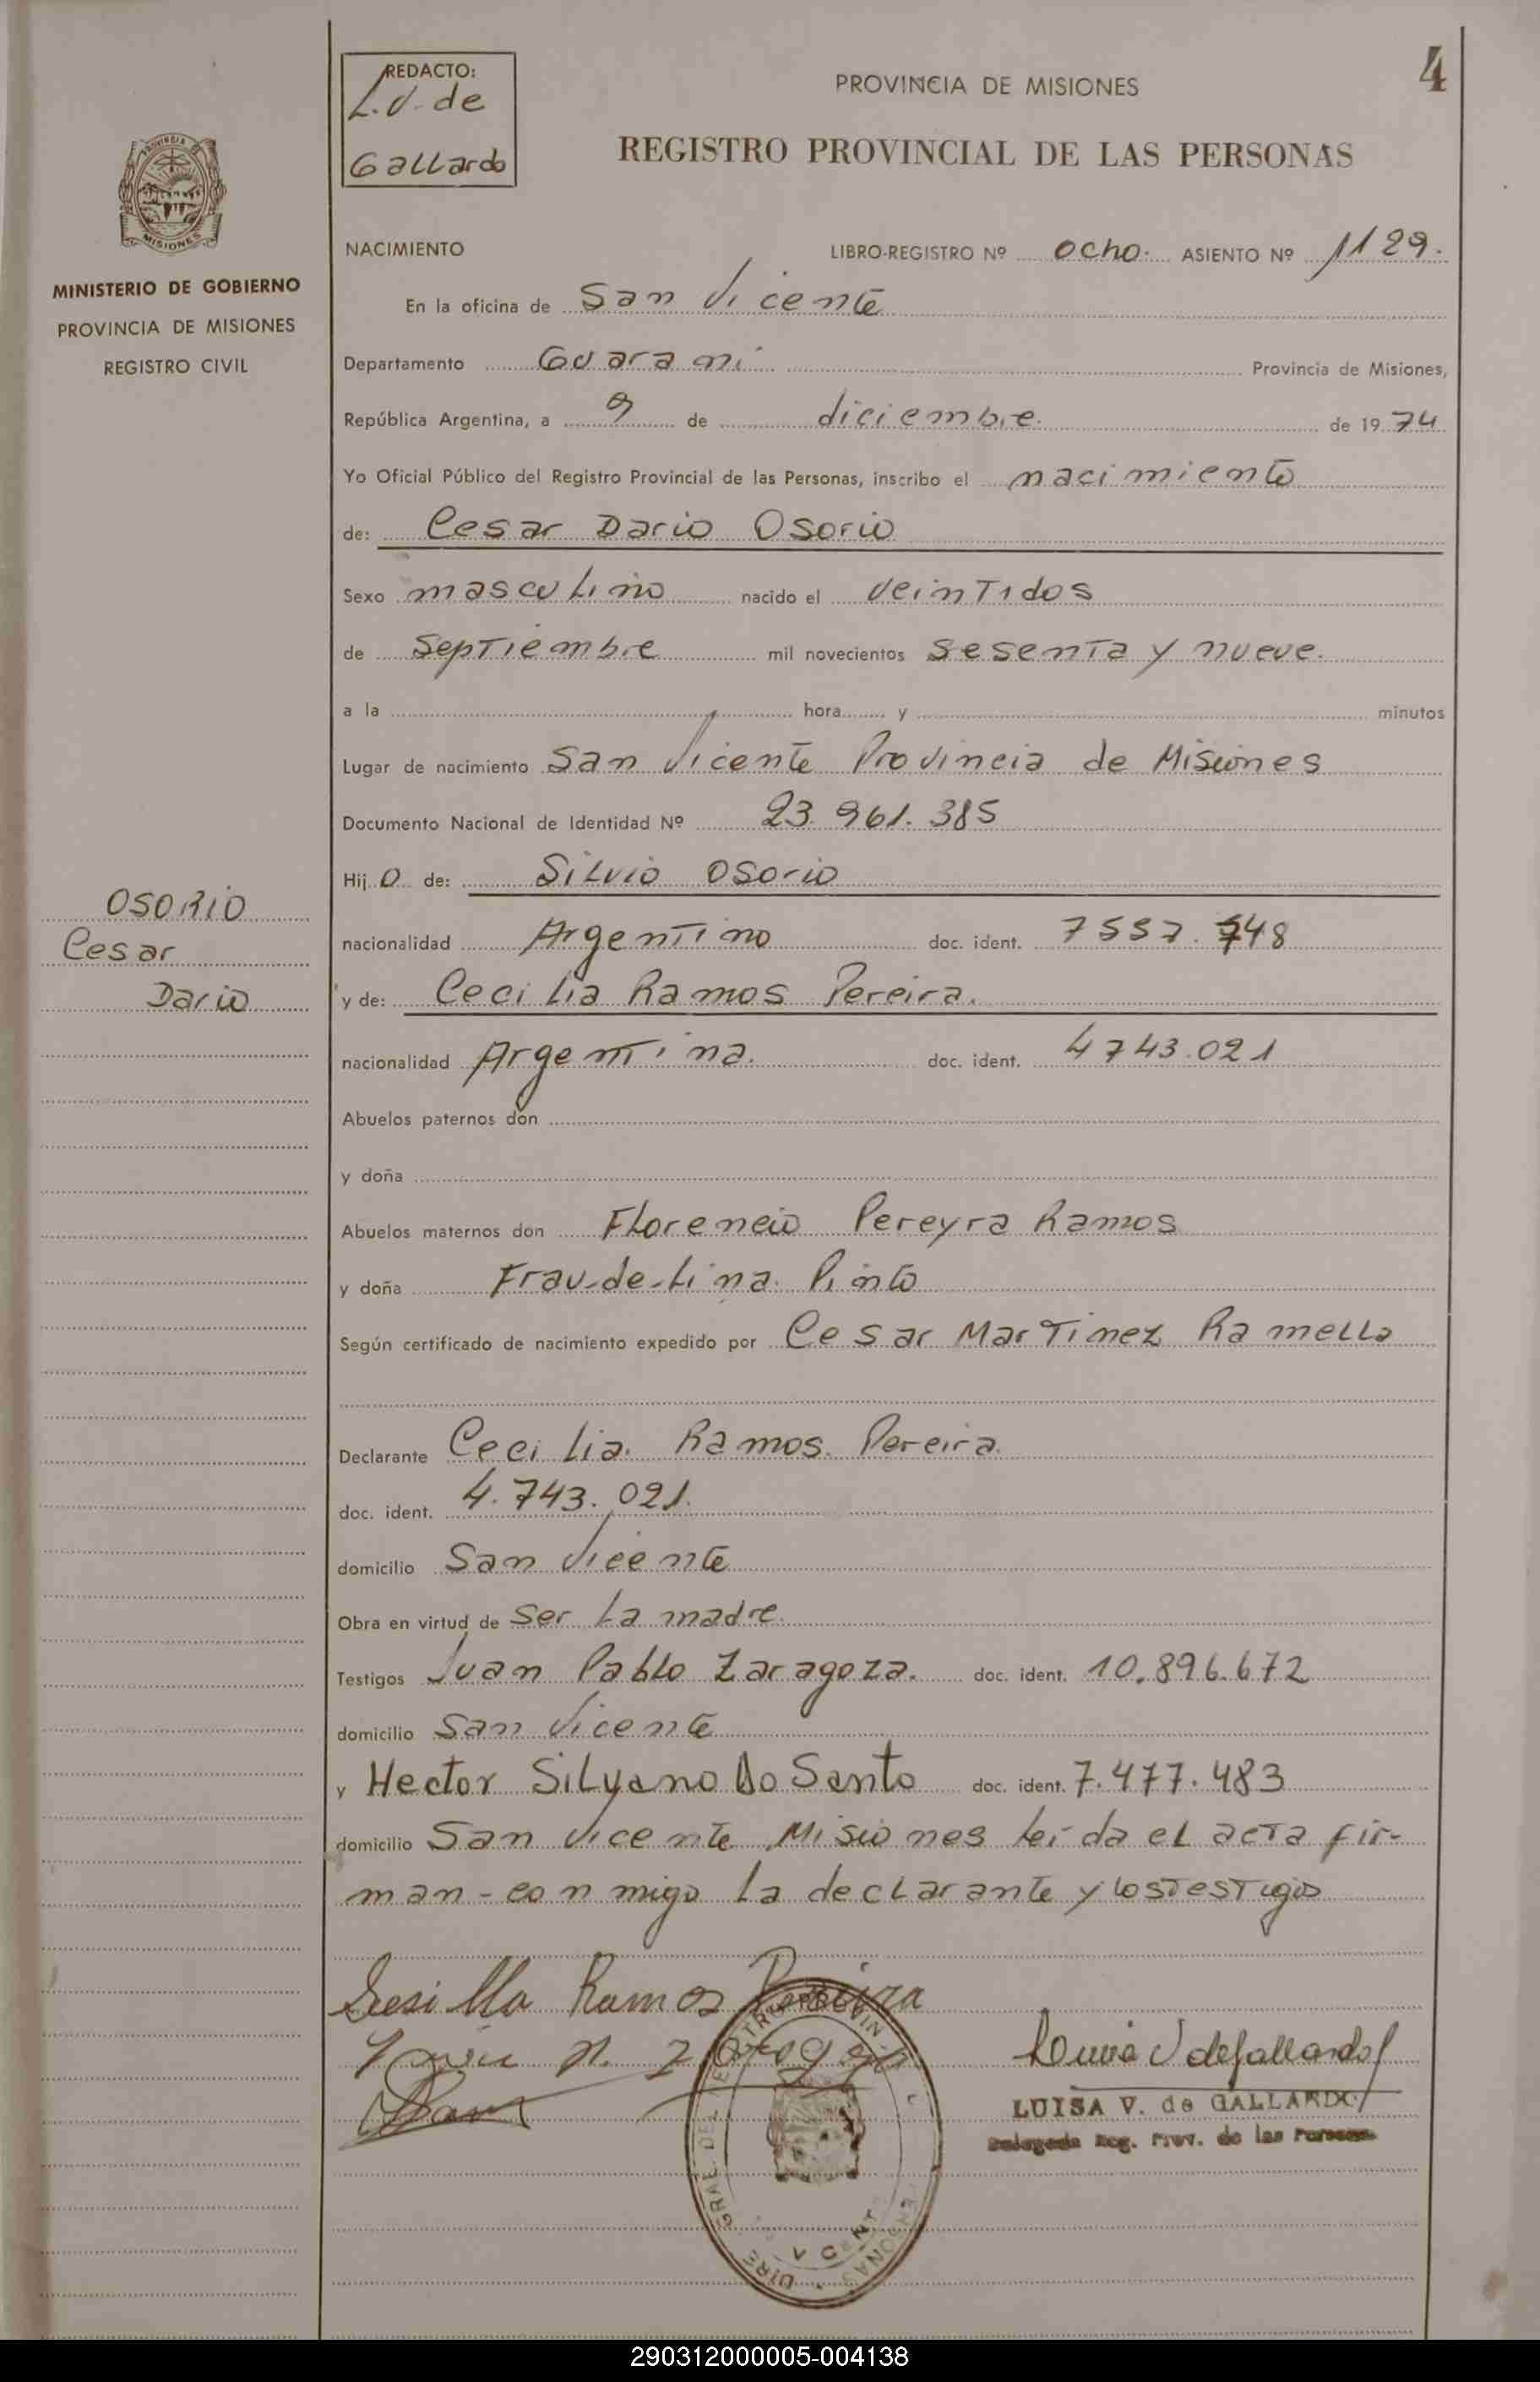 REDACTO:
L.V. de
Gallardo
PROVINCIA DE MISIONES
4
REGISTRO PROVINCIAL DE LAS PERSONAS
MISIONES
MINISTERIO DE GOBIERNO
PROVINCIA DE MISIONES
REGISTRO CIVIL
NACIMIENTO LIBRO-REGISTRO Nº ocho. ASIENTO Nº 1129.
En la oficina de San Vicente
Departamento Guarani Provincia de Misiones,
República Argentina, a 9 de diciembre. de 1974
Yo Oficial Público del Registro Provincial de las Personas, inscribo el nacimiento
de: Cesar Dario Osorio
Sexo masculino nacido el veintidos
de Septiembre mil novecientos sesenta y nueve.
a la hora y minutos
Lugar de nacimiento San Vicente Provincia de Misiones
Documento Nacional de Identidad Nº 23.961.385
Hijo de: Silvio Osorio
nacionalidad Argentino doc. ident. 7557.748
y de: Cecilia Ramos Pereira.
nacionalidad Argentina. doc. ident. 4743.021
OSORIO
Cesar
Dario
Abuelos paternos don
y doña
Abuelos maternos don Florencio Pereyra Ramos
y doña Frau-de-lina Pinto
Según certificado de nacimiento expedido por Cesar Martinez Ramella
Declarante Cecilia Ramos Pereira
doc. ident. 4.743.021.
domicilio San Vicente
Obra en virtud de ser la madre.
Testigos Juan Pablo Zaragoza. doc. ident. 10.896.672
domicilio San Vicente
y Hector Silyano Do Santo doc. ident. 7.477.483
domicilio San Vicente Misiones leida el acta fir-
man-conmigo la declarante y los testigos
Sesilla Ramos Pereira
Luisa V de Gallardo
LUISA V. de GALLARDO
Delegada Reg. Prov. de las Personas
290312000005-004138